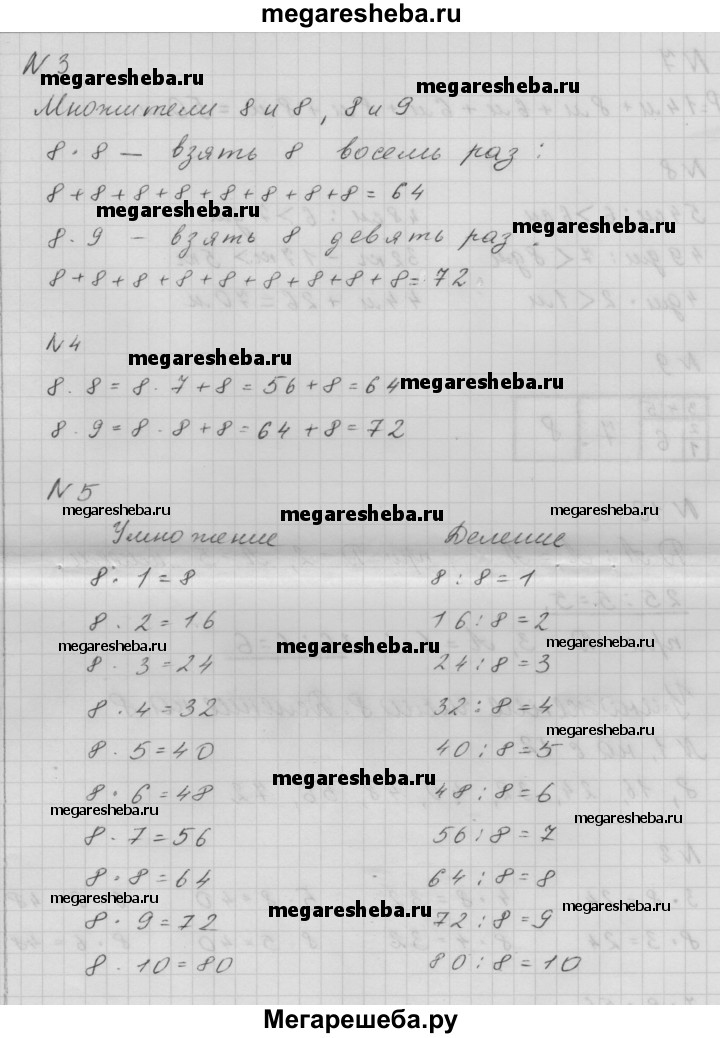 megaresheba.ru
N 3
megaresheba.ru
megaresheba.ru
Множители 8 и 8, 8 и 9
8 · 8 — взять 8 восемь раз:
8+8+8+8+8+8+8+8 = 64
megaresheba.ru
megaresheba.ru
8 · 9 – взять 8 девять раз:
8+8+8+8+8+8+8+8+8=72
N 4
megaresheba.ru
megaresheba.ru
8 · 8 = 8 · 7 + 8 = 56 + 8 = 64
8 · 9 = 8 · 8 + 8 = 64 + 8 = 72
N 5
megaresheba.ru megaresheba.ru megaresheba.ru
Умножение Деление
8 · 1 = 8 8 : 8 = 1
8 · 2 = 16 16 : 8 = 2
megaresheba.ru megaresheba.ru megaresheba.ru
8 · 3 = 24 24 : 8 = 3
8 · 4 = 32 32 : 8 = 4
megaresheba.ru
8 · 5 = 40 40 : 8 = 5
megaresheba.ru
8 · 6 = 48 48 : 8 = 6
megaresheba.ru megaresheba.ru
8 · 7 = 56 56 : 8 = 7
8 · 8 = 64 64 : 8 = 8
megaresheba.ru megaresheba.ru megaresheba.ru
8 · 9 = 72 72 : 8 = 9
8 · 10 = 80 80 : 8 = 10
Мегарешеба.ру